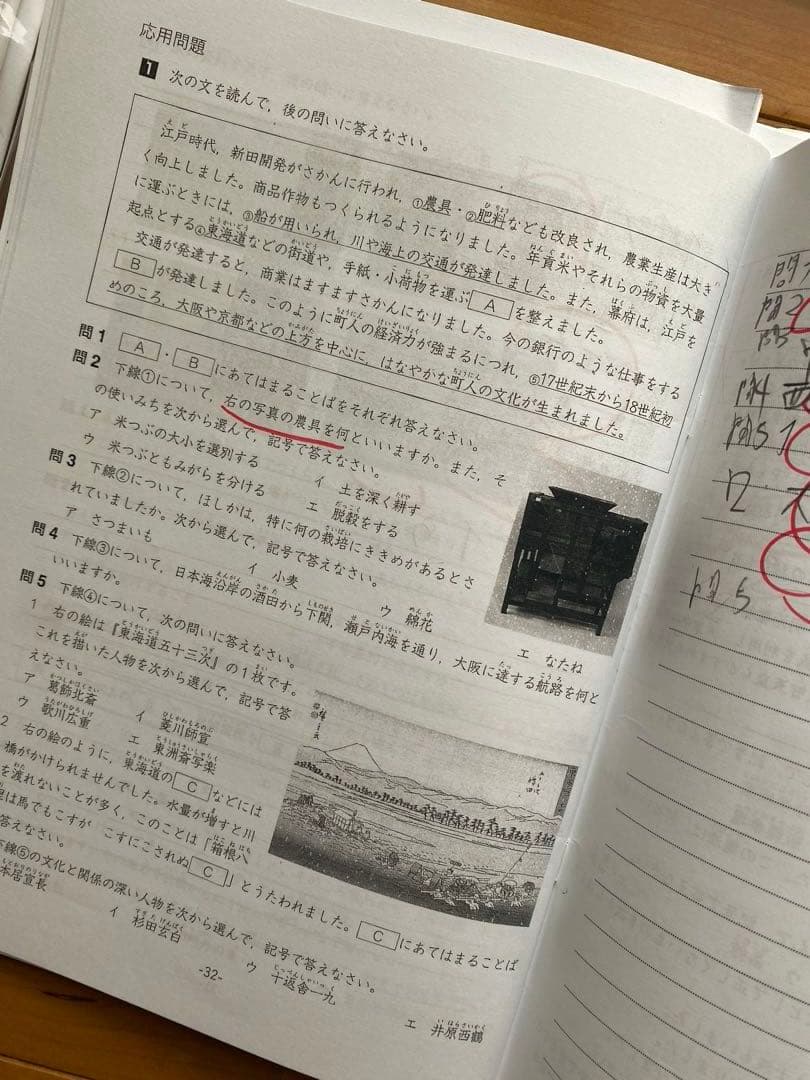 応用問題
1 次の文を読んで，後の問いに答えなさい。
江戸時代，新田開発がさかんに行われ，①農具・②肥料なども改良され，農業生産は大き
く向上しました。商品作物もつくられるようになりました。年貢米やそれらの物資を大量
に運ぶときには，③船が用いられ，川や海上の交通が発達しました。また，幕府は，江戸を
起点とする④東海道などの街道や，手紙・小荷物を運ぶ A を整えました。
交通が発達すると，商業はますますさかんになりました。今の銀行のような仕事をする
B が発達しました。このように町人の経済力が強まるにつれ，⑤17世紀末から18世紀初
めのころ，大阪や京都などの上方を中心に，はなやかな町人の文化が生まれました。
問1 A ・ B にあてはまることばをそれぞれ答えなさい。
問2 下線①について，右の写真の農具を何といいますか。また，そ
の使いみちを次から選んで，記号で答えなさい。
ア 米つぶの大小を選別する イ 土を深く耕す
ウ 米つぶともみがらを分ける エ 脱穀をする
問3 下線②について，ほしかは，特に何の栽培にききめがあるとさ
れていましたか。次から選んで，記号で答えなさい。
ア さつまいも イ 小麦 ウ 綿花 エ なたね
問4 下線③について，日本海沿岸の酒田から下関，瀬戸内海を通り，大阪に達する航路を何と
いいますか。
問5 下線④について，次の問いに答えなさい。
1 右の絵は『東海道五十三次』の1枚です。
これを描いた人物を次から選んで，記号で答
えなさい。
ア 葛飾北斎 イ 菱川師宣
ウ 歌川広重 エ 東洲斎写楽
2 右の絵のように，東海道の C などには
橋がかけられませんでした。水量が増すと川
を渡れないことが多く，このことは「箱根八
里は馬でもこすが こすにこされぬ C 」とうたわれました。 C にあてはまることば
答えなさい。
下線⑤の文化と関係の深い人物を次から選んで，記号で答えなさい。
本居宣長 イ 杉田玄白 ウ 十返舎一九 エ 井原西鶴
-32-
問2
問3
問4
問5
問5